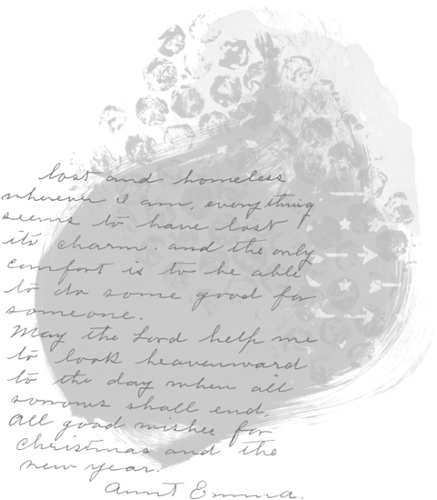 lost and homeless
wherever I am, everything
seems to have lost
its charm. and the only
comfort is to be able
to do some good for
someone.
May the Lord help me
to look heavenward
to the day when all
sorrows shall end.
All good wishes for
Christmas and the
new year.
Aunt Emma.